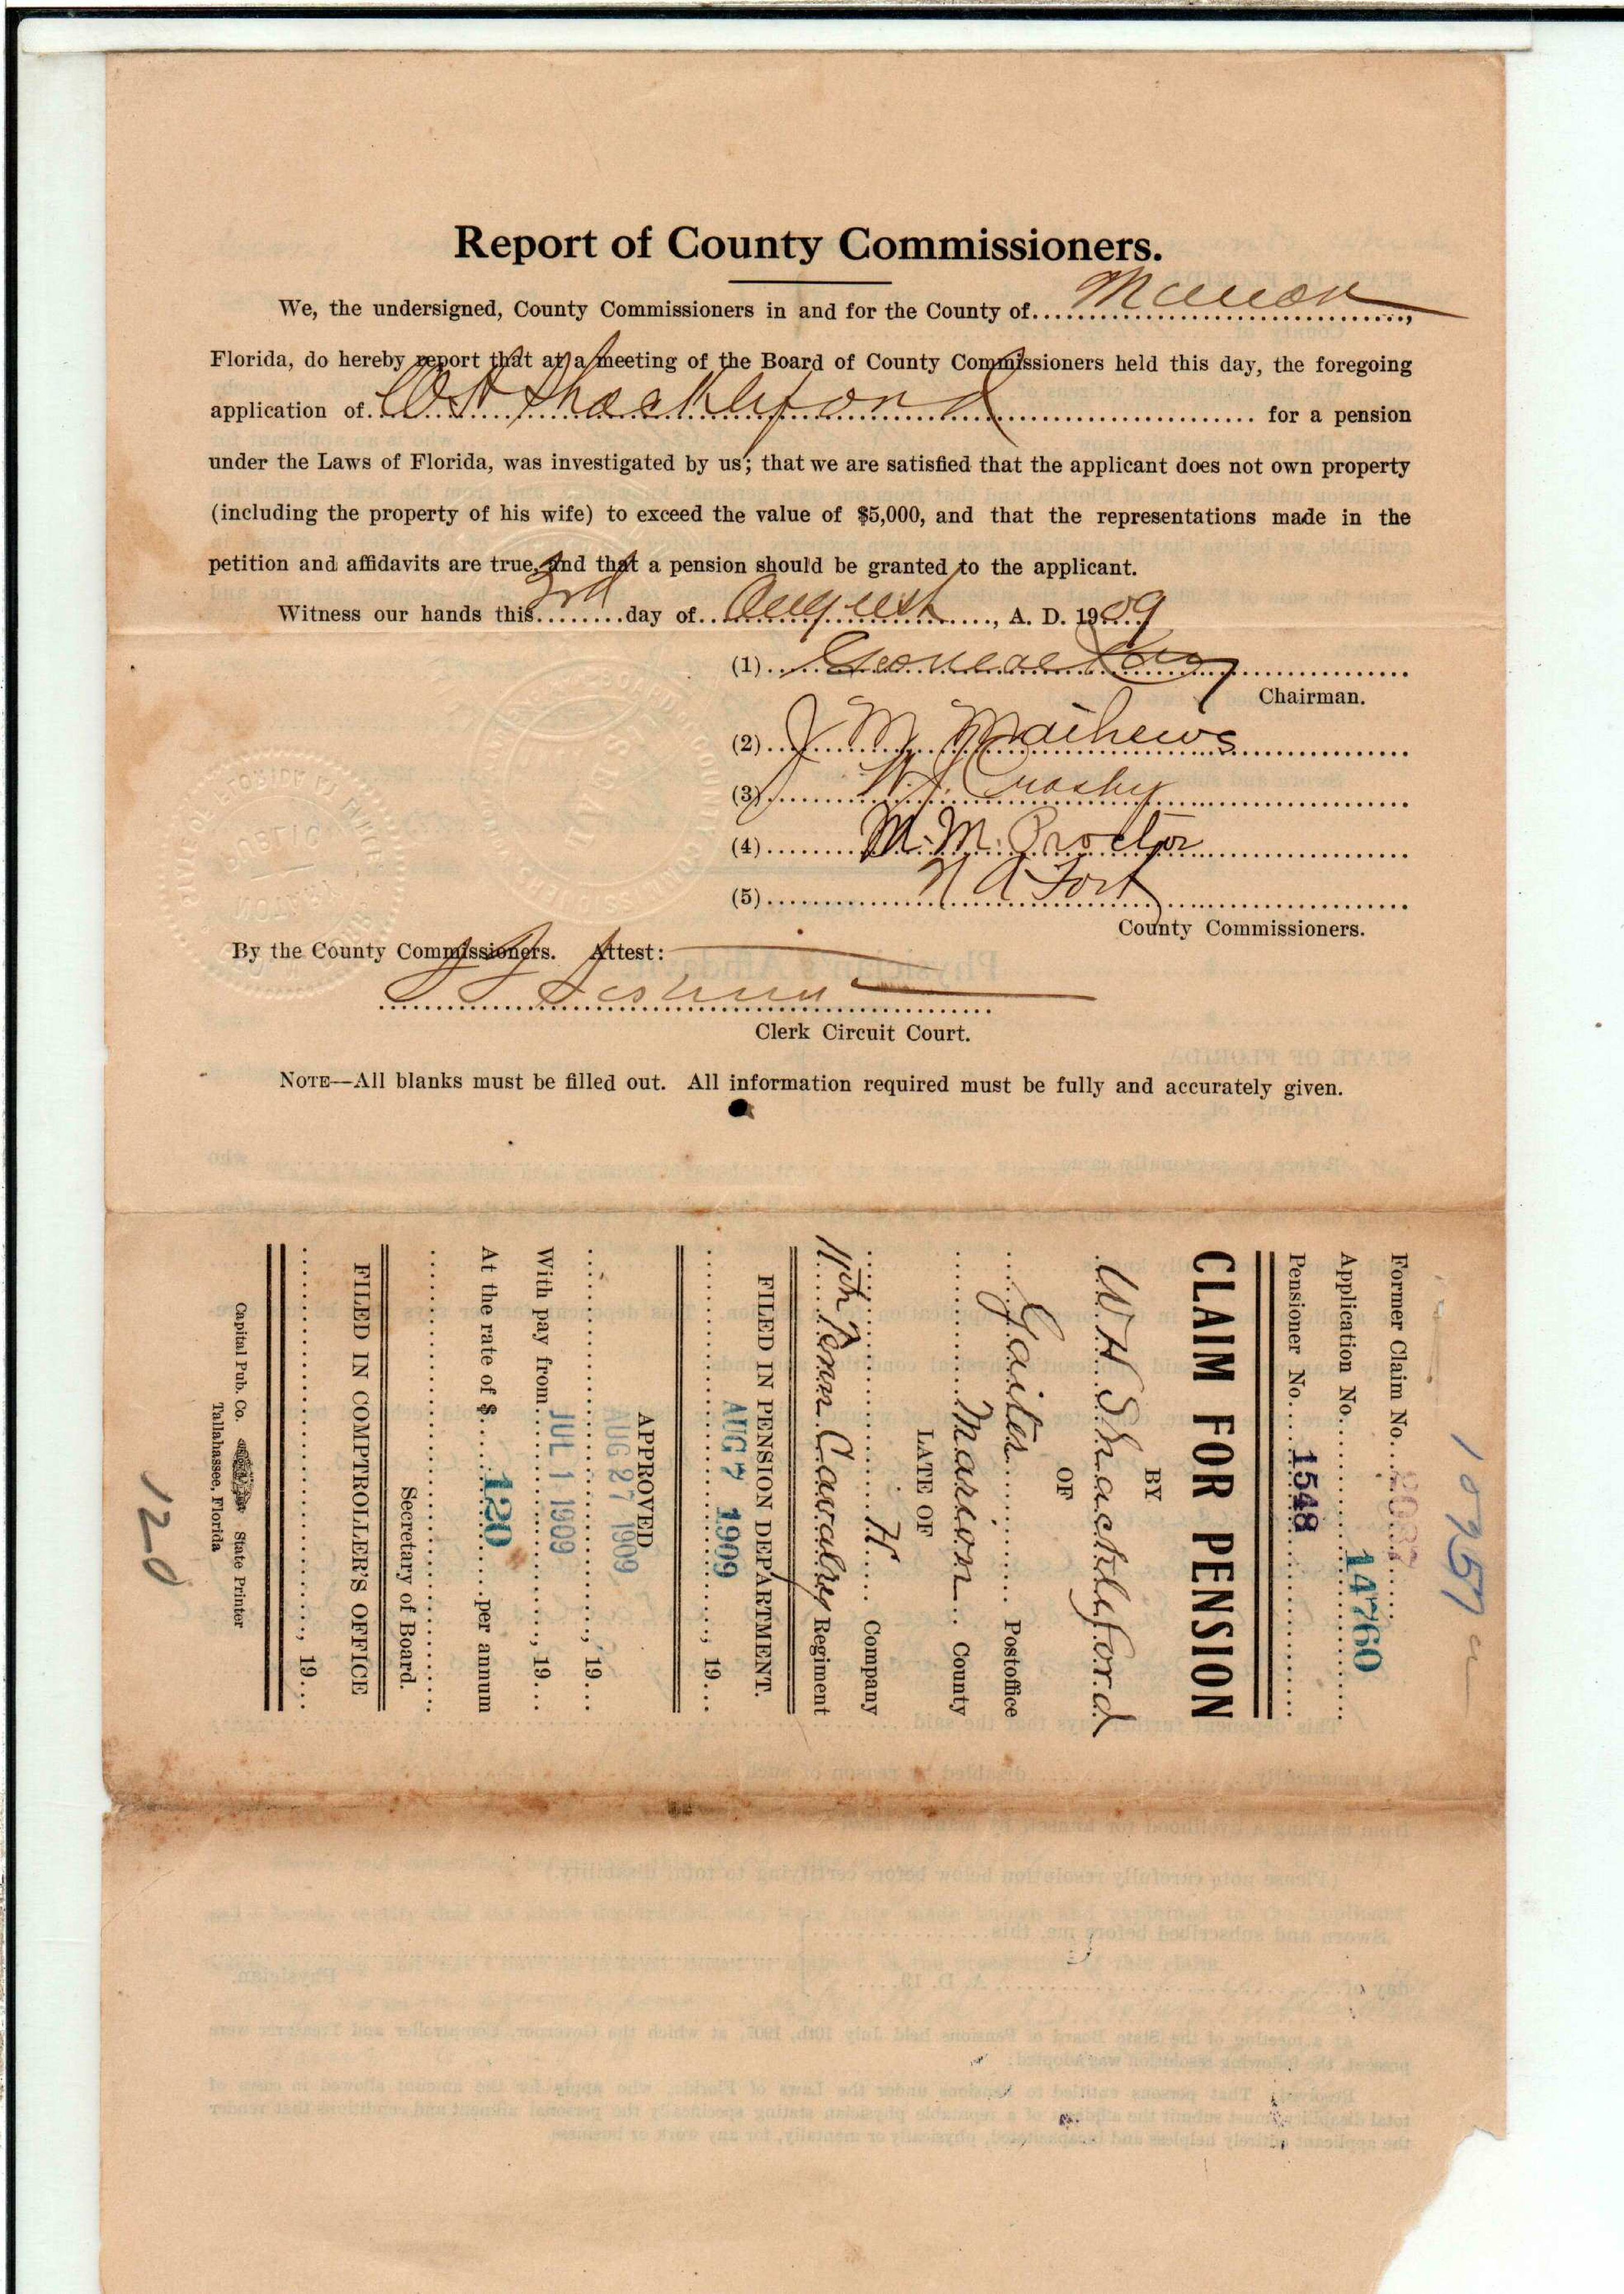 Report of County Commissioners.
We, the undersigned, County Commissioners in and for the County of Marion,
Florida, do hereby report that at a meeting of the Board of County Commissioners held this day, the foregoing
application of W H Shackleford for a pension
under the Laws of Florida, was investigated by us; that we are satisfied that the applicant does not own property
(including the property of his wife) to exceed the value of $5,000, and that the representations made in the
petition and affidavits are true, and that a pension should be granted to the applicant.
Witness our hands this 3rd day of August, A. D. 1909
(1)
Chairman.
(2) J M Mathews
(3) W. J. Crosby
(4) M. M. Proctor
(5) N A Fort
County Commissioners.
By the County Commissioners. Attest:
Clerk Circuit Court.
NOTE—All blanks must be filled out. All information required must be fully and accurately given.
Former Claim No.
Application No. 14760
Pensioner No. 1548
CLAIM FOR PENSION
BY
W H Shackleford
OF
Gaiter Postoffice
Marion County
LATE OF
H Company
11th Tenn Cavalry Regiment
FILED IN PENSION DEPARTMENT.
AUG 7 1909, 19
APPROVED
AUG 27 1909
, 19
With pay from JUL 1 1909, 19
At the rate of $ 120 per annum
Secretary of Board.
FILED IN COMPTROLLER'S OFFICE
, 19
Capital Pub. Co. State Printer
Tallahassee, Florida
120